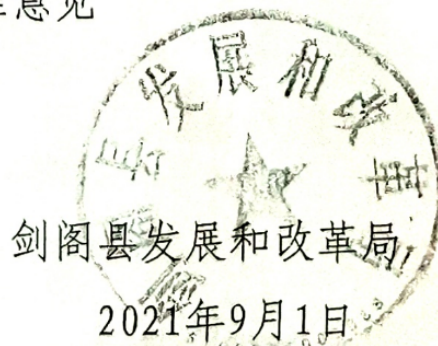 意见
发展和改革
剑阁县发展和改革局
2021年9月1日